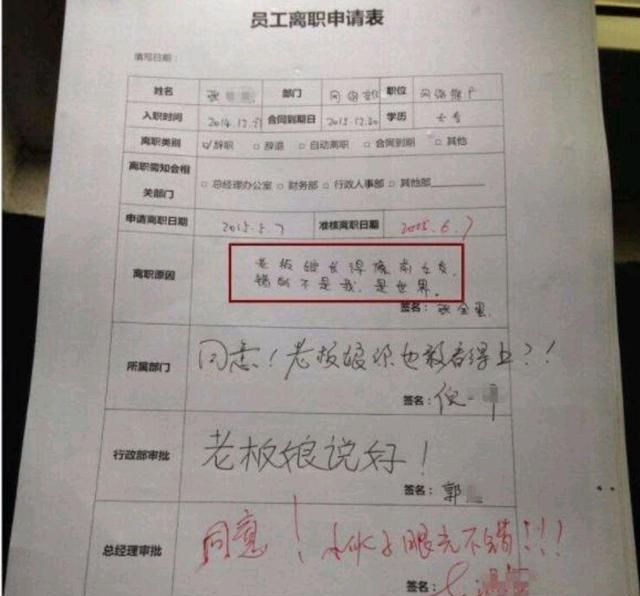 员工离职申请表
填写日期：
姓名 张 部门 网络 职位 网络推广
入职时间 2014.12.21 合同到期日 2015.12.20 学历 大专
离职类别 ☑辞职 □辞退 □自动离职 □合同到期 □其他
离职需知会相关部门 □总经理办公室 □财务部 □行政人事部 □其他部
申请离职日期 2015.5.7 准核离职日期 2015.6.7
离职原因
老板娘长得像前女友，
错的不是我，是世界。
签名：张全蛋
所属部门
同意！老板娘你也敢看得上？！
签名：倪
行政部审批
老板娘说好！
签名：郭
总经理审批
同意！小伙子眼光不错！！！
签名：